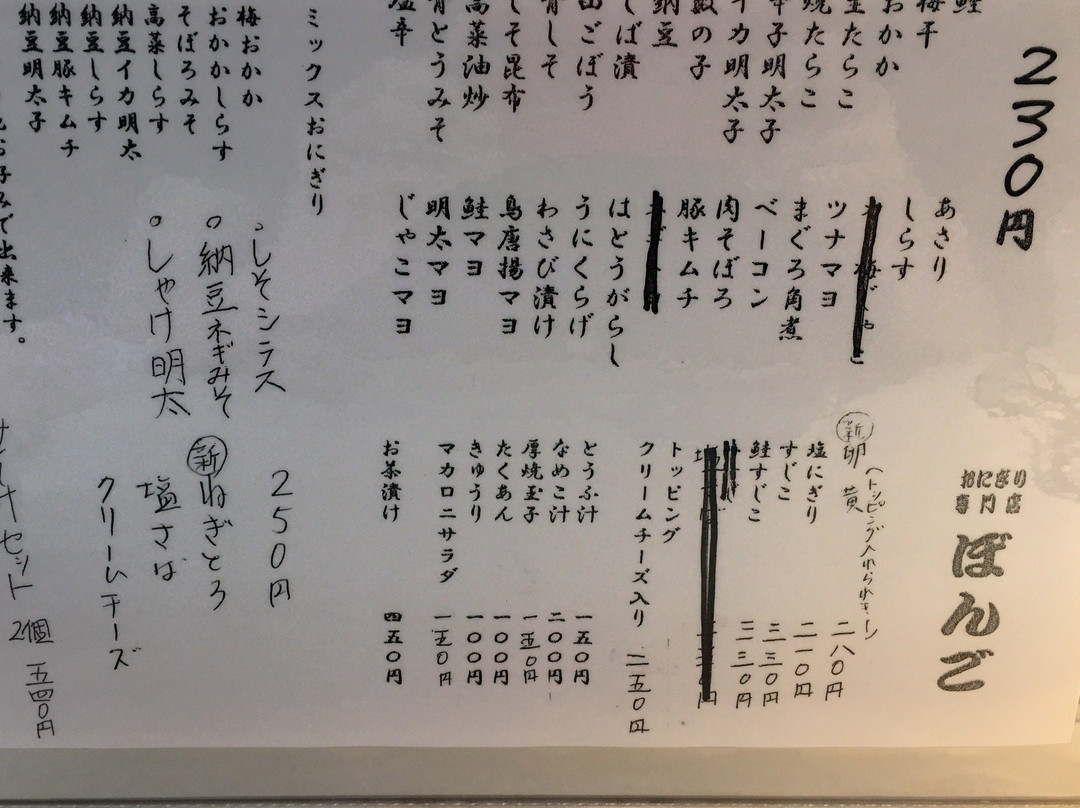 おにぎり
専門店
ぼんご
230円
鮭
梅干
おかか
生たらこ
焼たらこ
辛子明太子
イカ明太子
数の子
納豆
しば漬
山ごぼう
青しそ
しそ昆布
高菜油炒
青とうみそ
塩辛
あさり
しらす
ツナマヨ
まぐろ角煮
ベーコン
肉そぼろ
豚キムチ
はとうがらし
うにくらげ
わさび漬け
鳥唐揚マヨ
鮭マヨ
明太マヨ
じゃこマヨ
新 卵黄 (トッピング入れられまーす)
塩にぎり 二一〇円
すじこ 三三〇円
鮭すじこ 三三〇円
トッピング
クリームチーズ入り 二五〇円
とうふ汁 一五〇円
なめこ汁 二〇〇円
厚焼玉子 一五〇円
たくあん 一〇〇円
きゅうり 一〇〇円
マカロニサラダ 一五〇円
お茶漬け 四五〇円
ミックスおにぎり
梅おかか
おかかしらす
そぼろみそ
高菜しらす
納豆イカ明太
納豆しらす
納豆豚キムチ
納豆明太子
お好みで出来ます。
。しそシラス
。納豆ネギみそ
。しゃけ明太
250円
新 ねぎとろ
塩さば
クリームチーズ
セット 2個 五四〇円